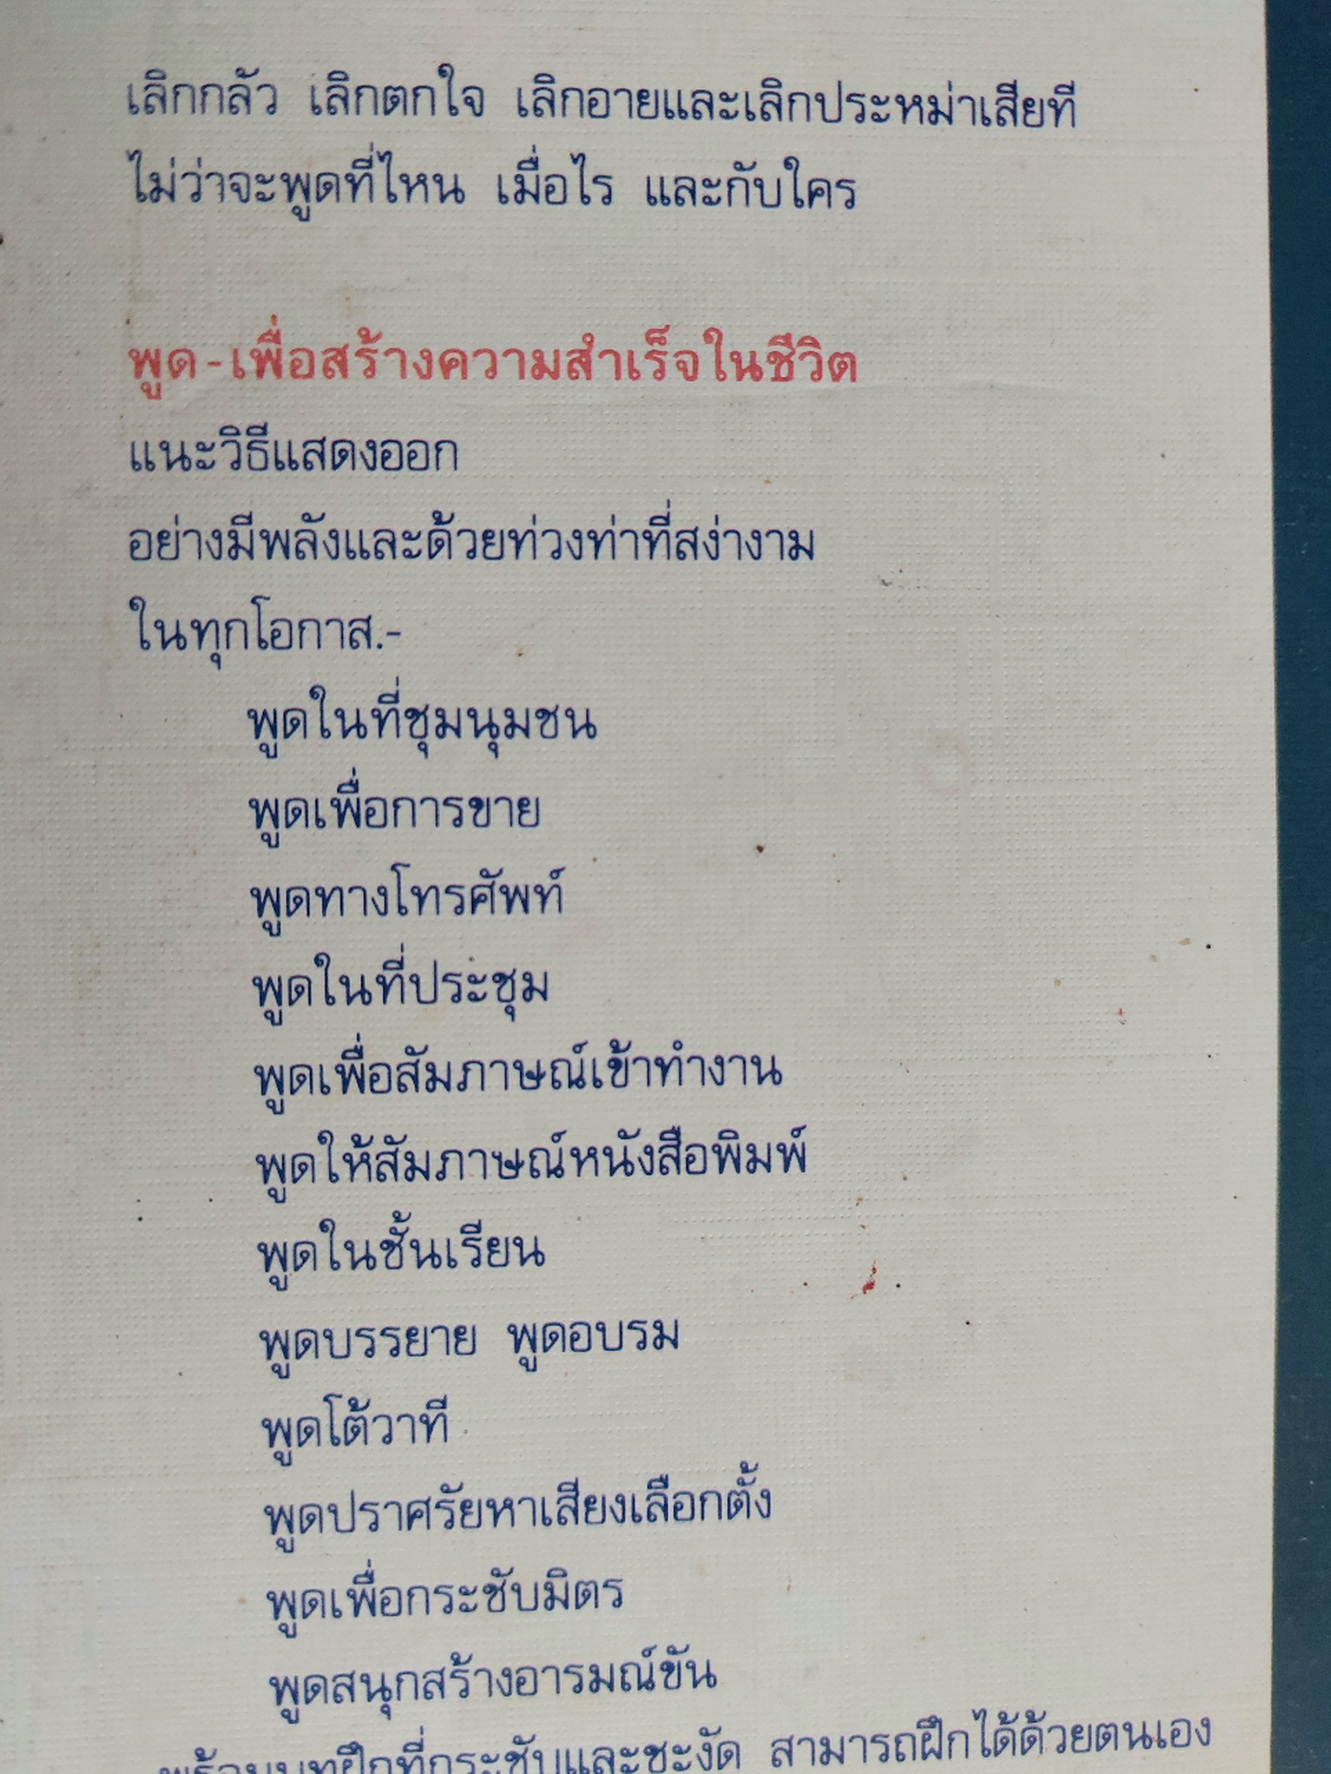 เลิกกลัว เลิกตกใจ เลิกอายและเลิกประหม่าเสียที
ไม่ว่าจะพูดที่ไหน เมื่อไร และกับใคร
พูด-เพื่อสร้างความสำเร็จในชีวิต
แนะวิธีแสดงออก
อย่างมีพลังและด้วยท่วงท่าที่สง่างาม
ในทุกโอกาส.-
พูดในที่ชุมนุมชน
พูดเพื่อการขาย
พูดทางโทรศัพท์
พูดในที่ประชุม
พูดเพื่อสัมภาษณ์เข้าทำงาน
พูดให้สัมภาษณ์หนังสือพิมพ์
พูดในชั้นเรียน
พูดบรรยาย พูดอบรม
พูดโต้วาที
พูดปราศรัยหาเสียงเลือกตั้ง
พูดเพื่อกระชับมิตร
พูดสนุกสร้างอารมณ์ขัน
พร้อมบทฝึกที่กระชับและชะงัด สามารถฝึกได้ด้วยตนเอง